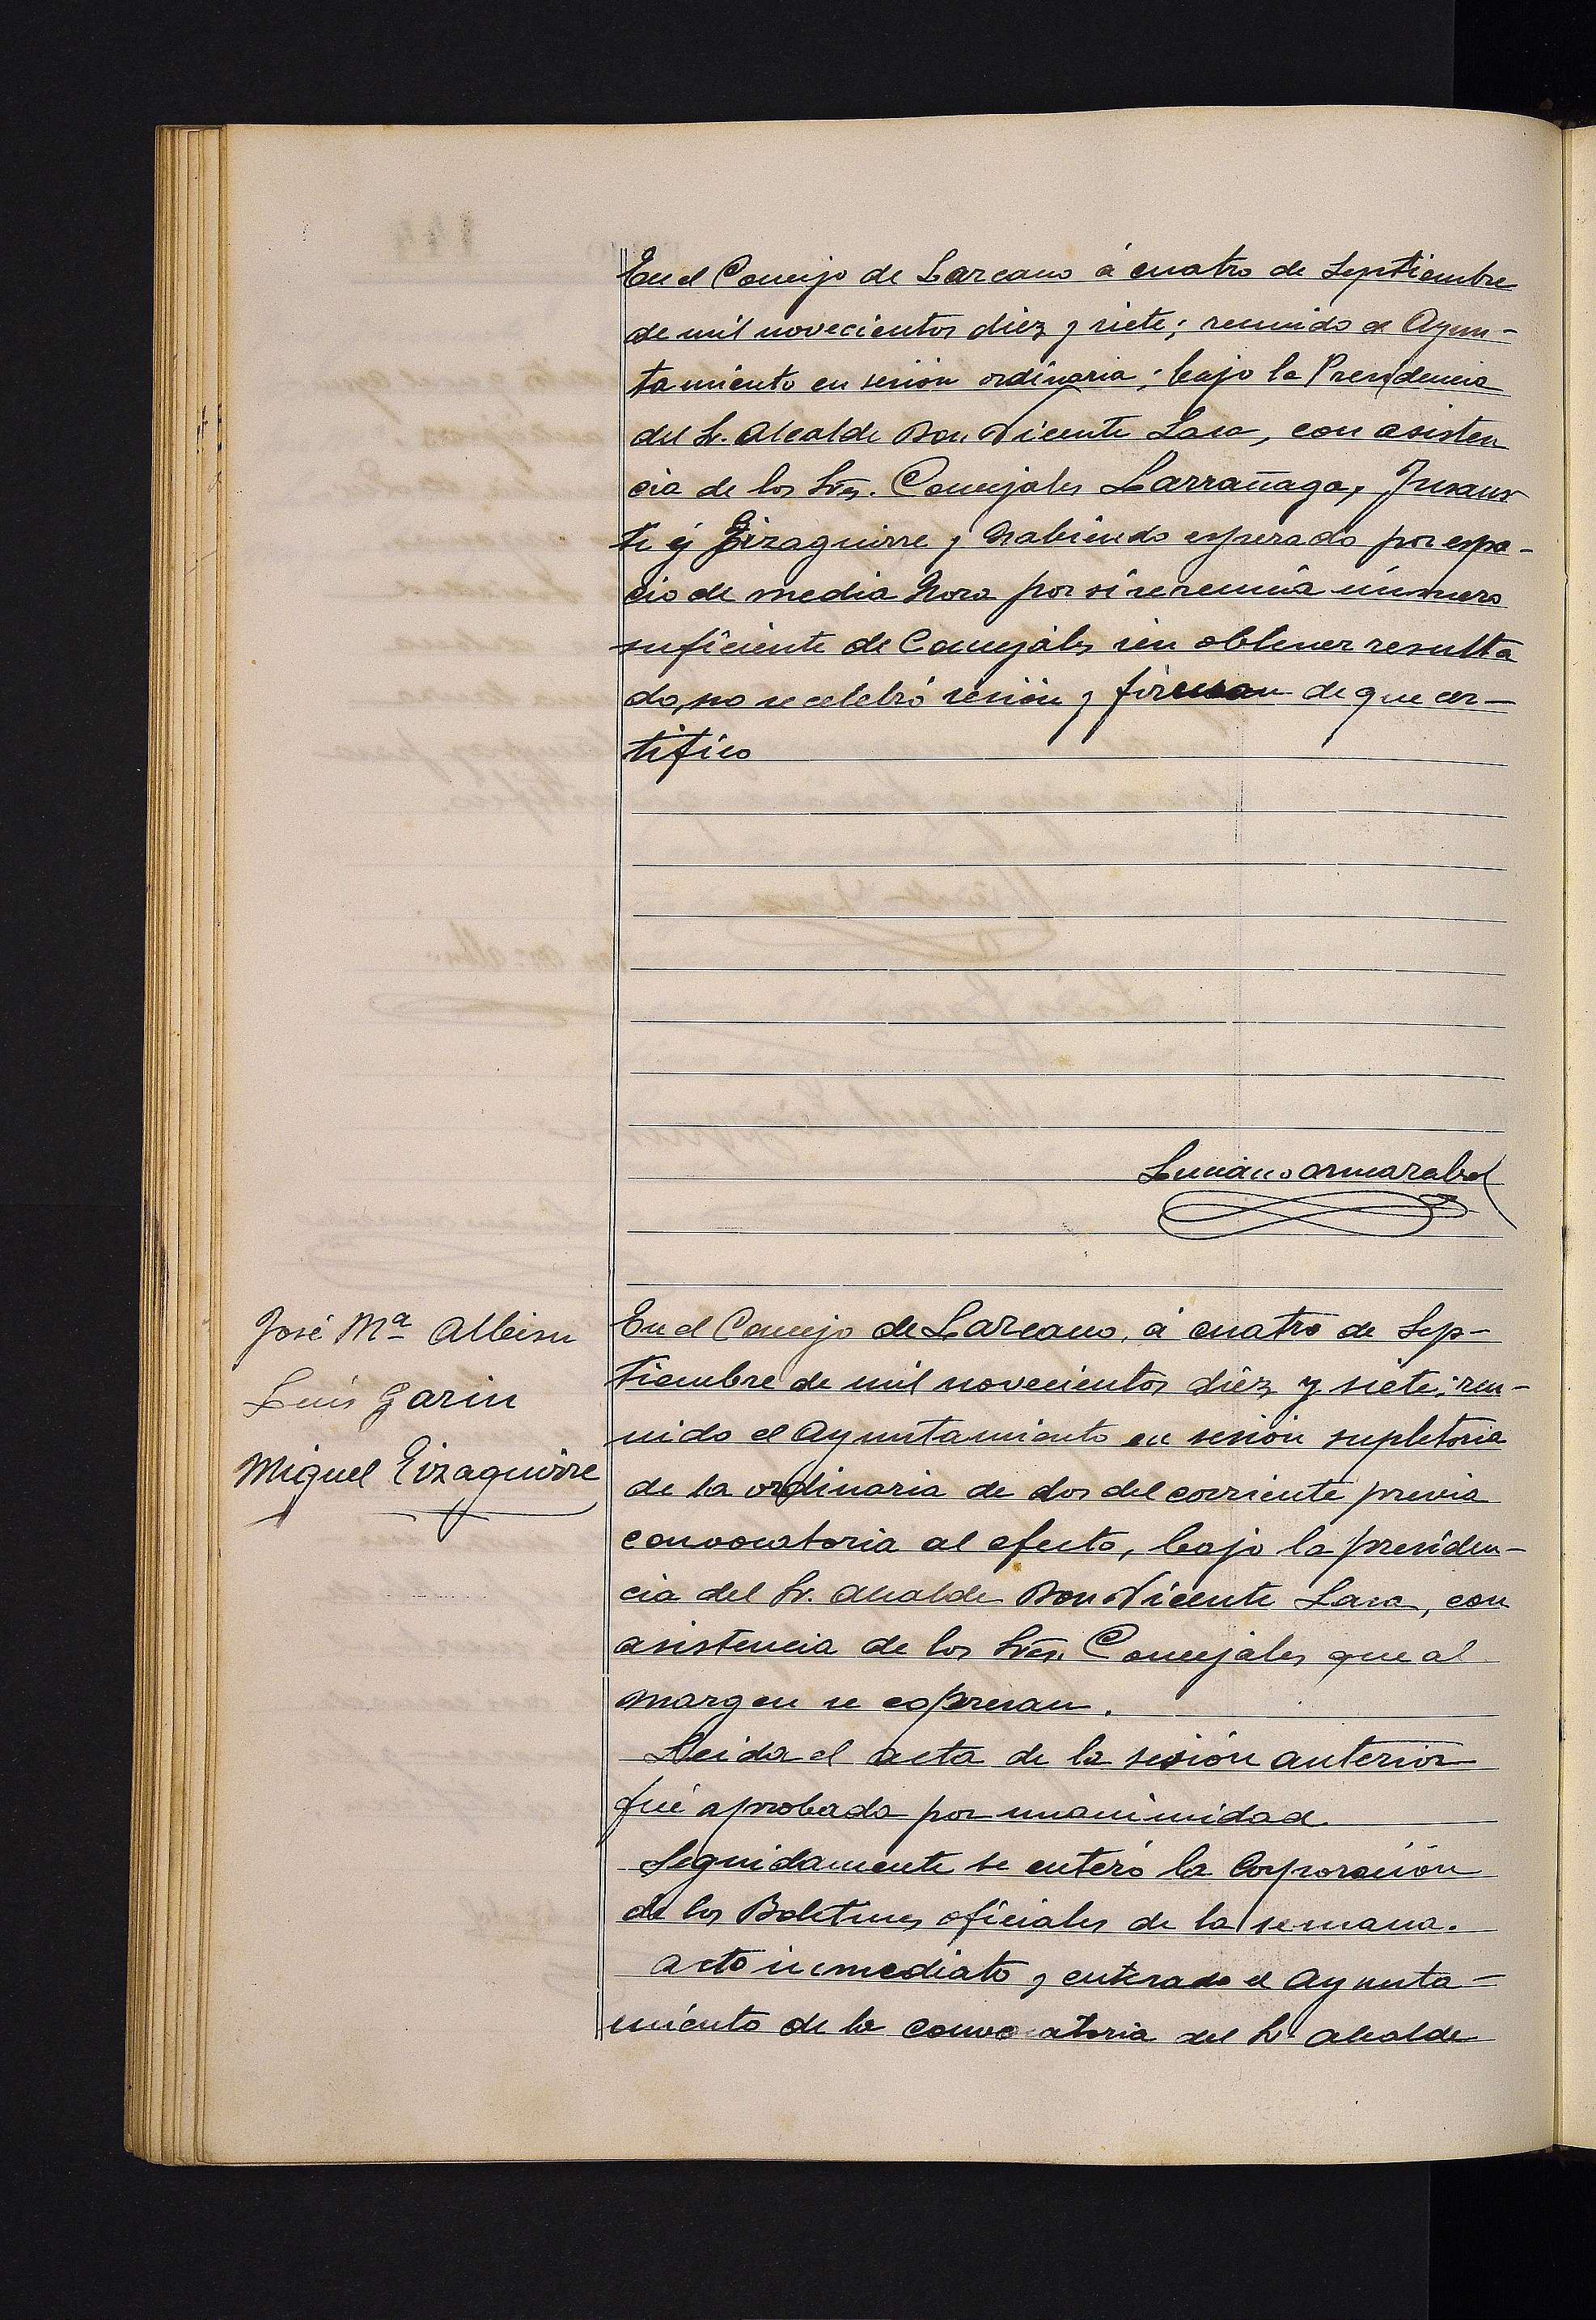 En el Concejo de Lazcano á cuatro de Septiembre
de mil novecientos diez y siete; reunido el Ayun-
tamiento en sesión ordinaria; bajo la Presidencia
del Sr. Alcalde Don Vicente Lasa, con asisten
cia de los Sres. Concejales Larrañaga,
ti y Eizaguirre y habiendo esperado por espa-
cio de media hora por si se reunia número
suficiente de Concejales sin obtener resulta
do, no se celebró sesión y firman de que cer-
tifico
Luciano
José Mª Albisu
Luis Garin
Miguel Eizaguirre
En el Concejo de Lazcano, á cuatro de Sep-
tiembre de mil novecientos diez y siete; reu-
nido el Ayuntamiento en sesión supletoria
de la ordinaria de dos del corriente previa
convocatoria al efecto, bajo la presiden-
cia del Sr. Alcalde Don Vicente Lasa, con
asistencia de los Sres. Concejales que al
margen se expresan.
Leida el acta de la sesión anterior
fué aprobada por unanimidad.
Seguidamente se enteró la Corporación
de los Boletines oficiales de la semana.
Acto inmediato y enterado el Ayunta-
miento de la convocatoria del Sr. Alcalde